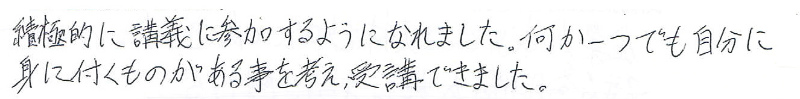 積極的に講義に参加するようになれました。何か一つでも自分に
身に付くものがある事を考え、受講できました。